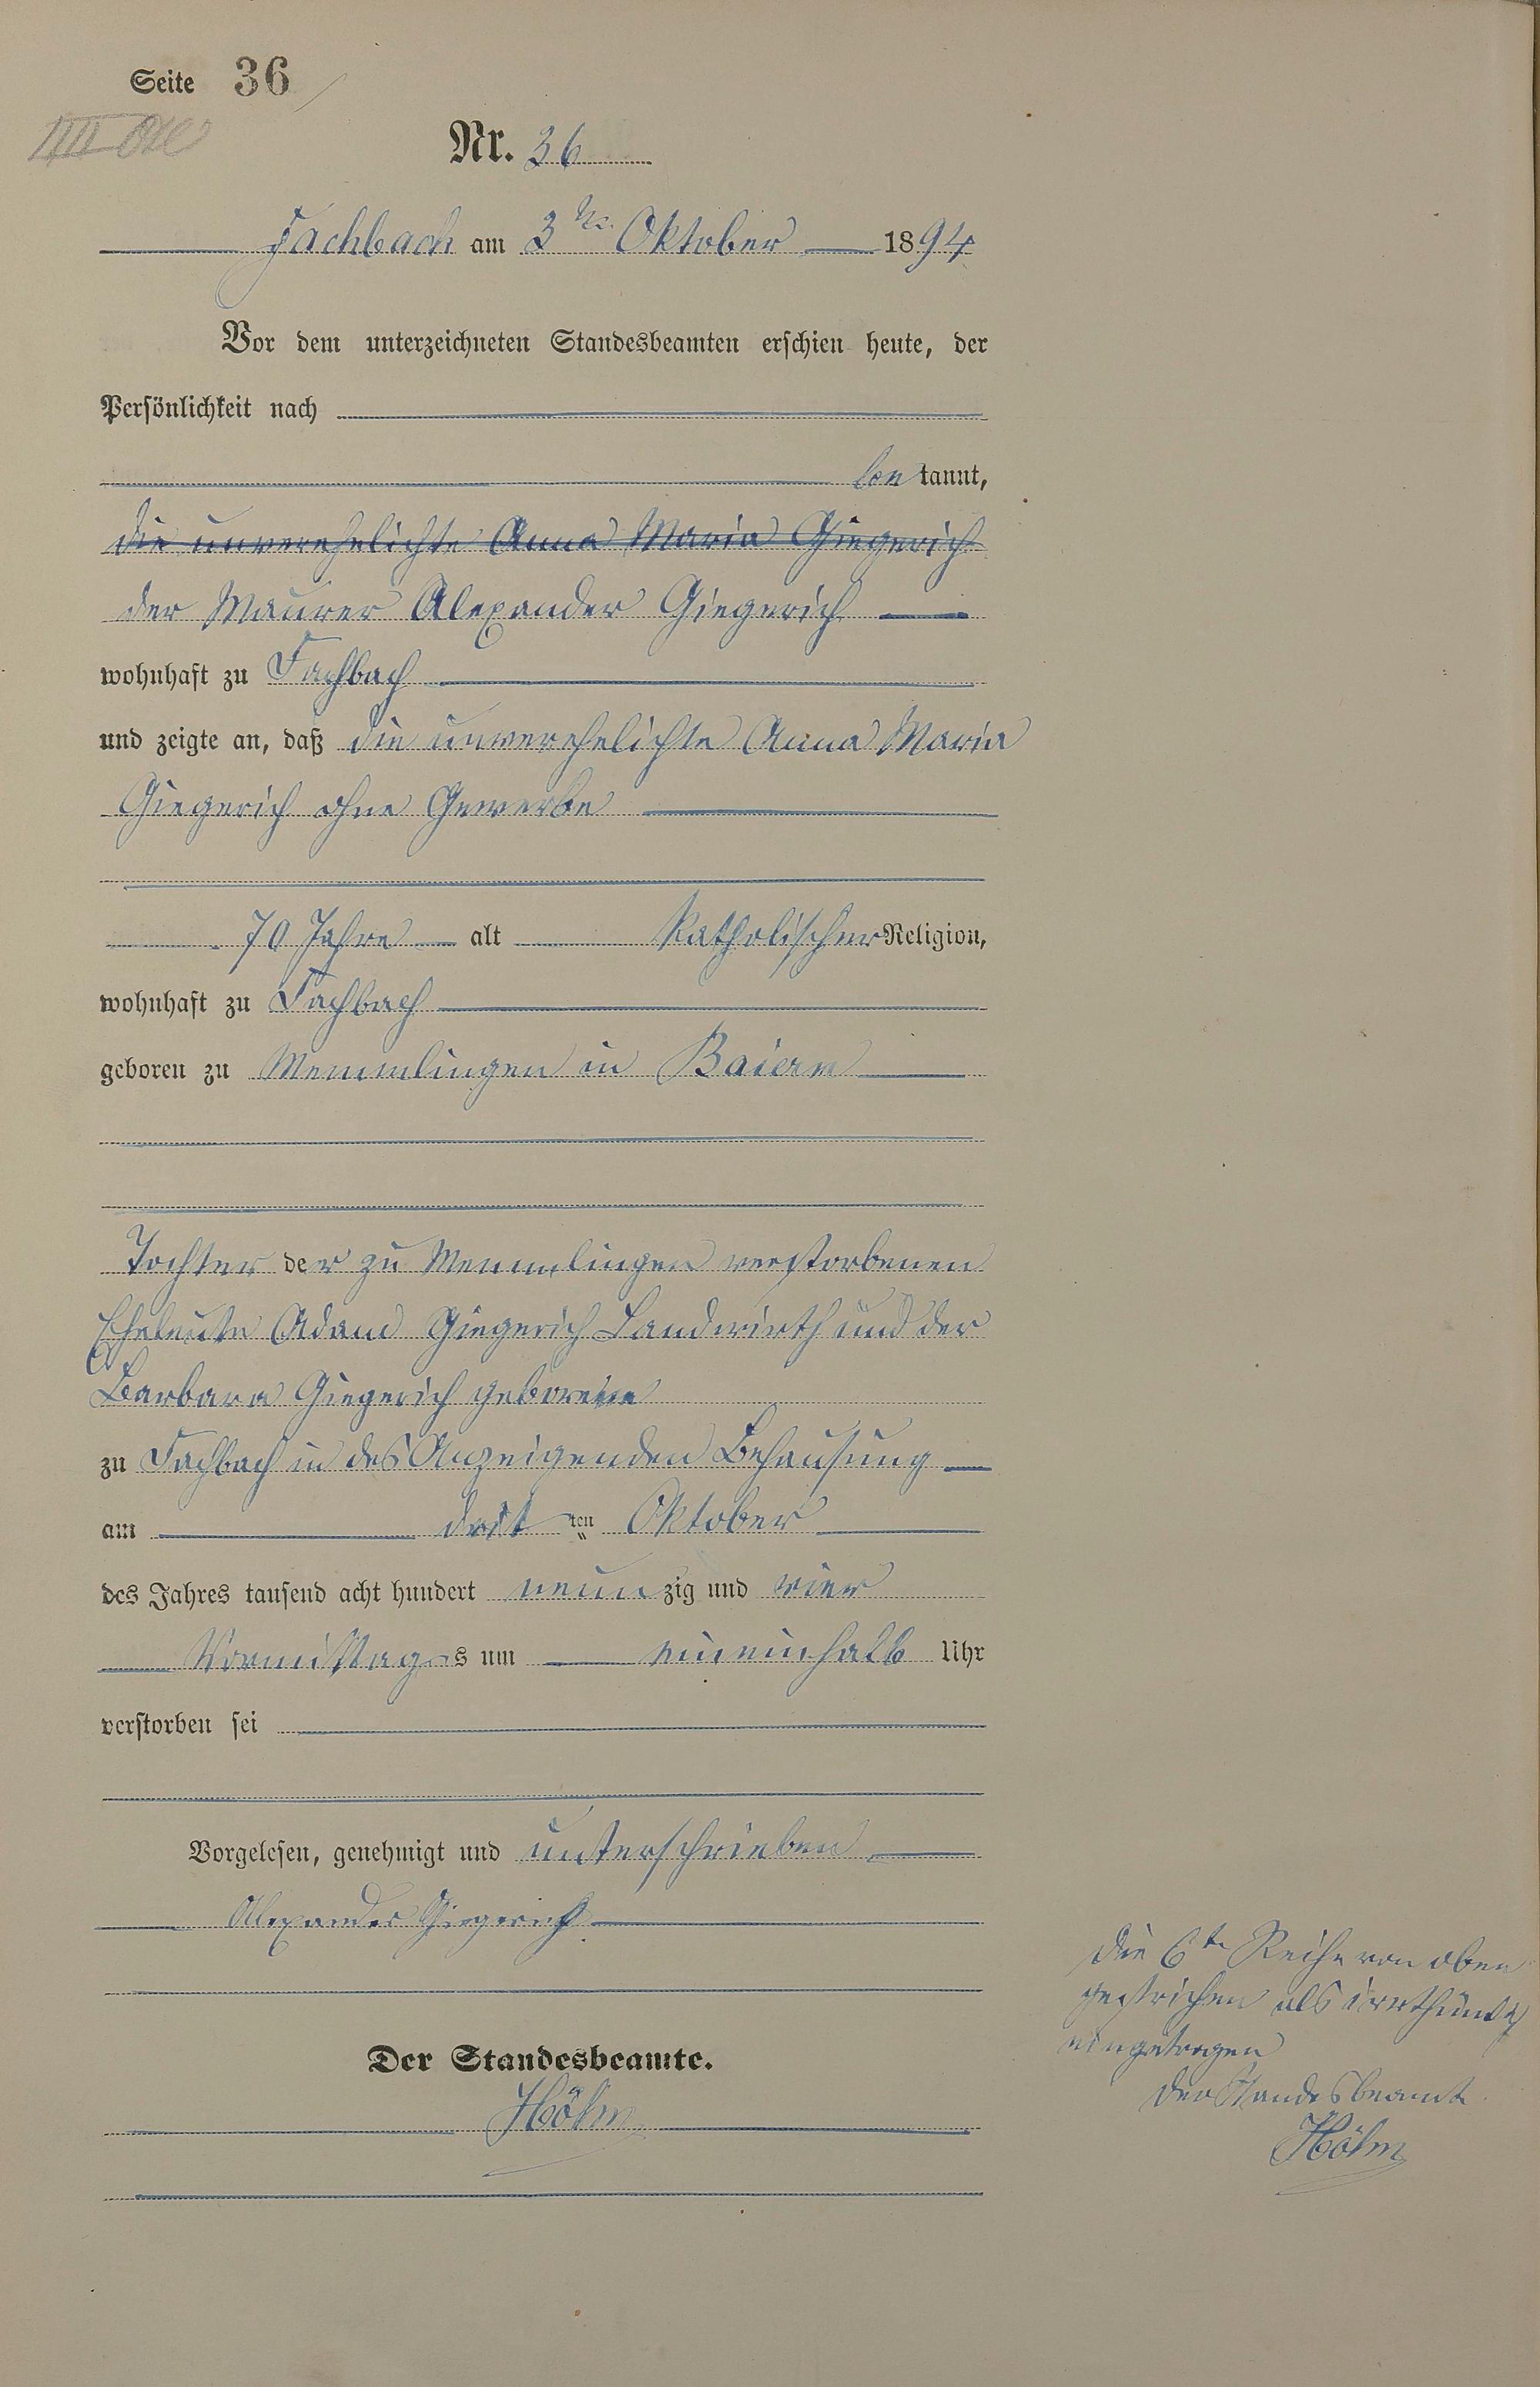 Seite 36
Nr. 36
Fachbach am 3ten Oktober 1894
Vor dem unterzeichneten Standesbeamten erschien heute, der
Persönlichkeit nach
be kannt,
die unverehelichte Anna Maria Giegerich
der Maurer Alexander Giegerich
wohnhaft zu Fachbach
und zeigte an, daß die unverehelichte Anna Maria
Giegerich ohne Gewerbe
70 Jahre alt katholischer Religion,
wohnhaft zu Fachbach
geboren zu Memmlingen in Baiern
Tochter der zu Memmlingen verstorbenen
Eheleute Adam Giegerich Landwirth und der
Barbara Giegerich geborene
zu Fachbach in des Anzeigenden Behausung
am drit ten Oktober
des Jahres tausend acht hundert neun zig und vier
Vormittags um eineinhalb Uhr
verstorben sei
Vorgelesen, genehmigt und unterschrieben
Alexander Giegerich
Der Standesbeamte.
Höhn
Die 6te Reihe von oben
gestrichen als irrthümlich
eingetragen
Der Standesbeamte
Höhn